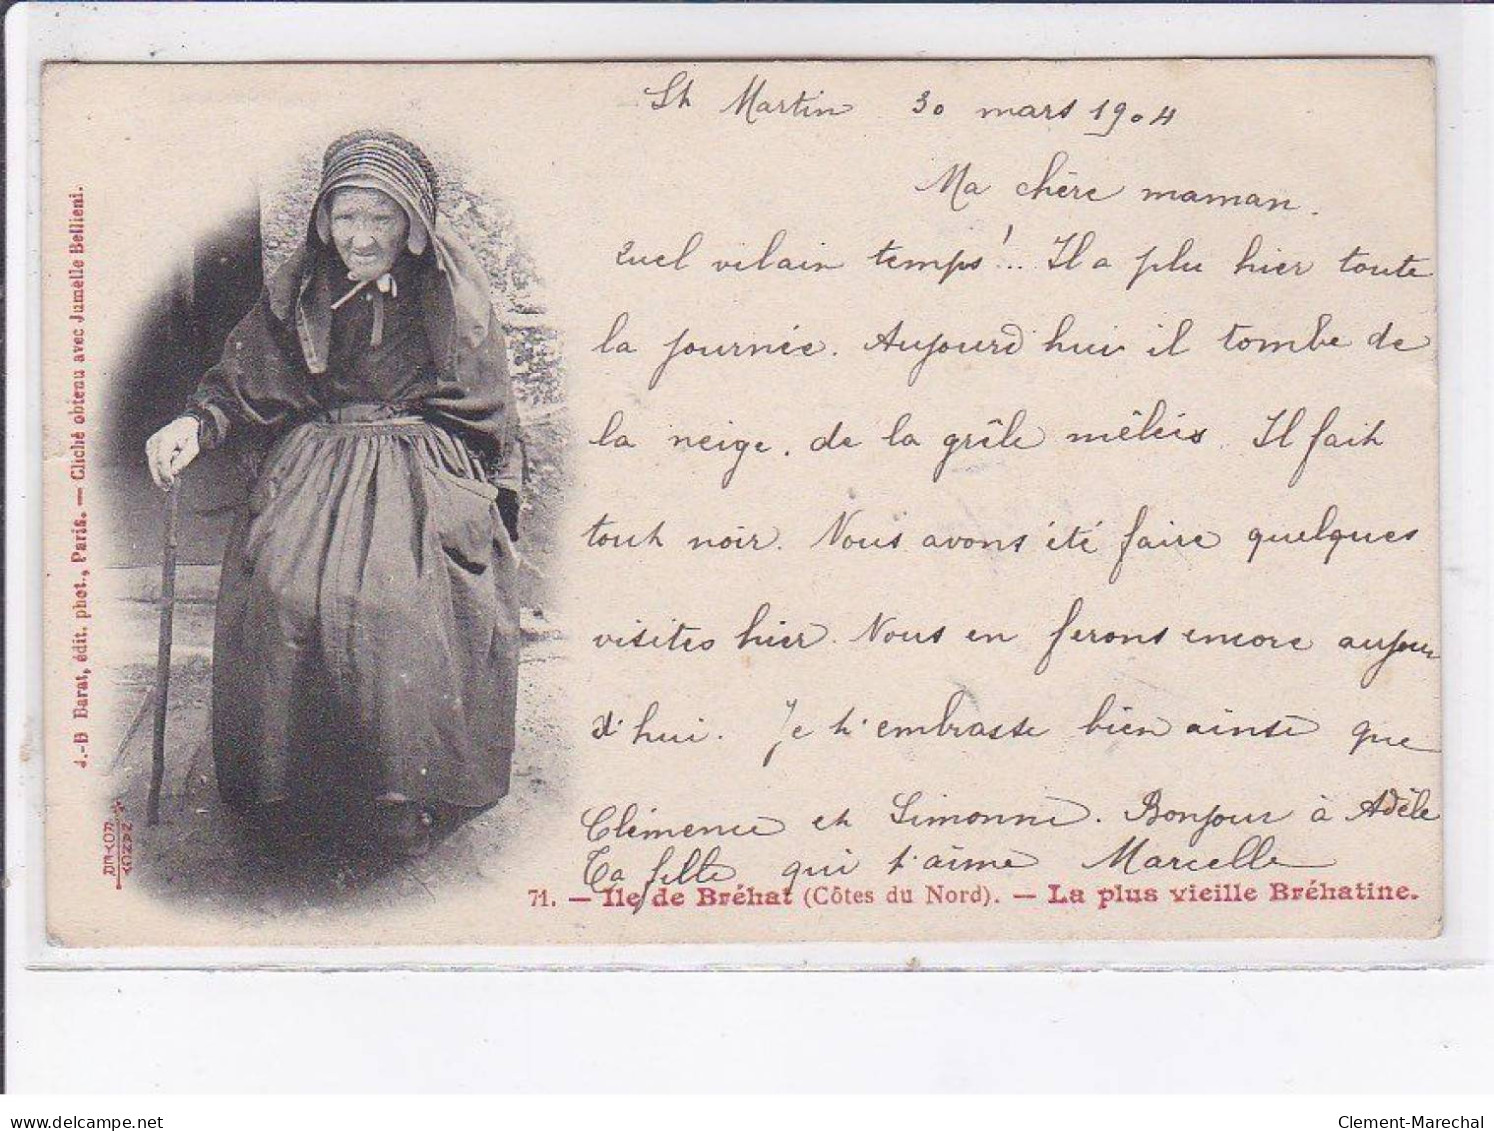 St Martin 30 mars 1904
Ma chère maman.
Quel vilain temps!.. Il a plu hier toute
la journée. Aujourd'hui il tombe de
la neige. de la grêle mêleés. Il fait
tout noir. Nous avons été faire quelques
visites hier. Nous en ferons encore aujour
d'hui. Je t'embrasse bien ainsi que
Clémence et Simonne. Bonjour à Adèle
Ta fille qui t'aime Marcelle
71. — Ile de Bréhat (Côtes du Nord). — La plus vieille Bréhatine.
J.-B Barat, édit. phot., Paris. — Cliché obtenu avec Jumelle Bellieni.
delcampe.net
Clement-Marechal